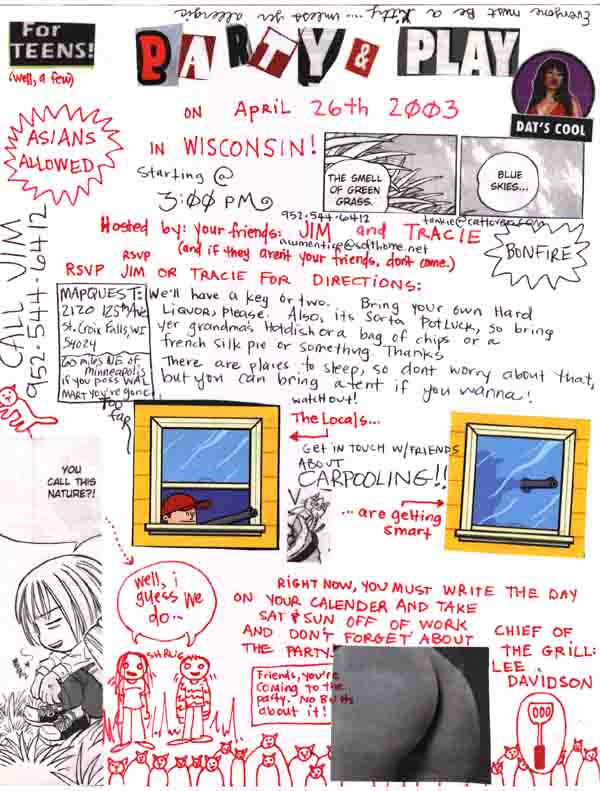 Everyone must Be a Kitty.... unless yer allergic
For
TEENS!
(well, a few)
PARTY & PLAY
DAT'S COOL
ON April 26th 2003
IN WISCONSIN!
ASIANS
ALLOWED
Starting @
3:00 PM
THE SMELL
OF GREEN
GRASS.
BLUE
SKIES...
952.544.6412
Hosted by: your friends: JIM and TRACIE
acumentice@softhome.net
(and if they aren't your friends, don't come.)
RSVP
RSVP JIM OR TRACIE FOR DIRECTIONS:
BONFIRE
CALL VIM
952-544-6412
MAPQUEST:
2120 125th Ave
St. Croix Falls, WI
54024
60 miles NE of
Minneapolis
if you pass WAL
MART you're gone
too
far
We'll have a keg or two. Bring your own Hard
Liquor, please. Also, its Sorta Potluck, so bring
yer grandma's Hotdish or a bag of chips or a
french silk pie or something. Thanks
There are places to sleep, so dont worry about that,
but you can bring a tent if you wanna!
watch out!
The Locals...
Get in touch w/friends
ABOUT
CARPOOLING!!
...are getting
smart
YOU
CALL THIS
NATURE?!
well, i
guess we
do...
SHRUG
RIGHT NOW, YOU MUST WRITE THE DAY
ON YOUR CALENDER AND TAKE
SAT & SUN OFF OF WORK
AND DON'T FORGET ABOUT
THE PARTY!
Friends, you're
coming to the
party. No Butts
about it!
CHIEF OF
THE GRILL:
LEE
DAVIDSON